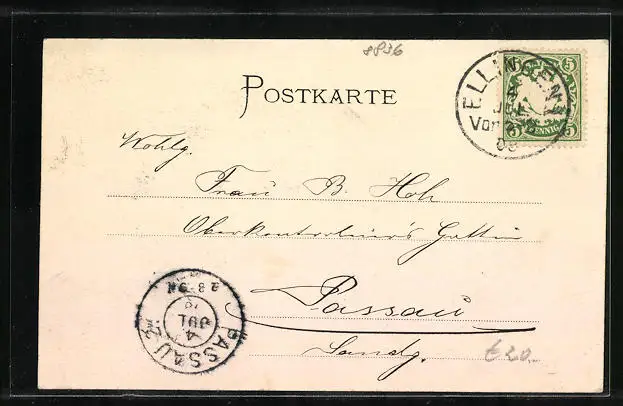 8836
POSTKARTE
ELLINGEN
4
JUL
Vor
5 5
5 PFENNIG 5
Wohlg.
Frau B. Hoh
Oberkontroleur's Gattin
Passau
Landg.
PASSAU 2
4
JUL
€ 20.-